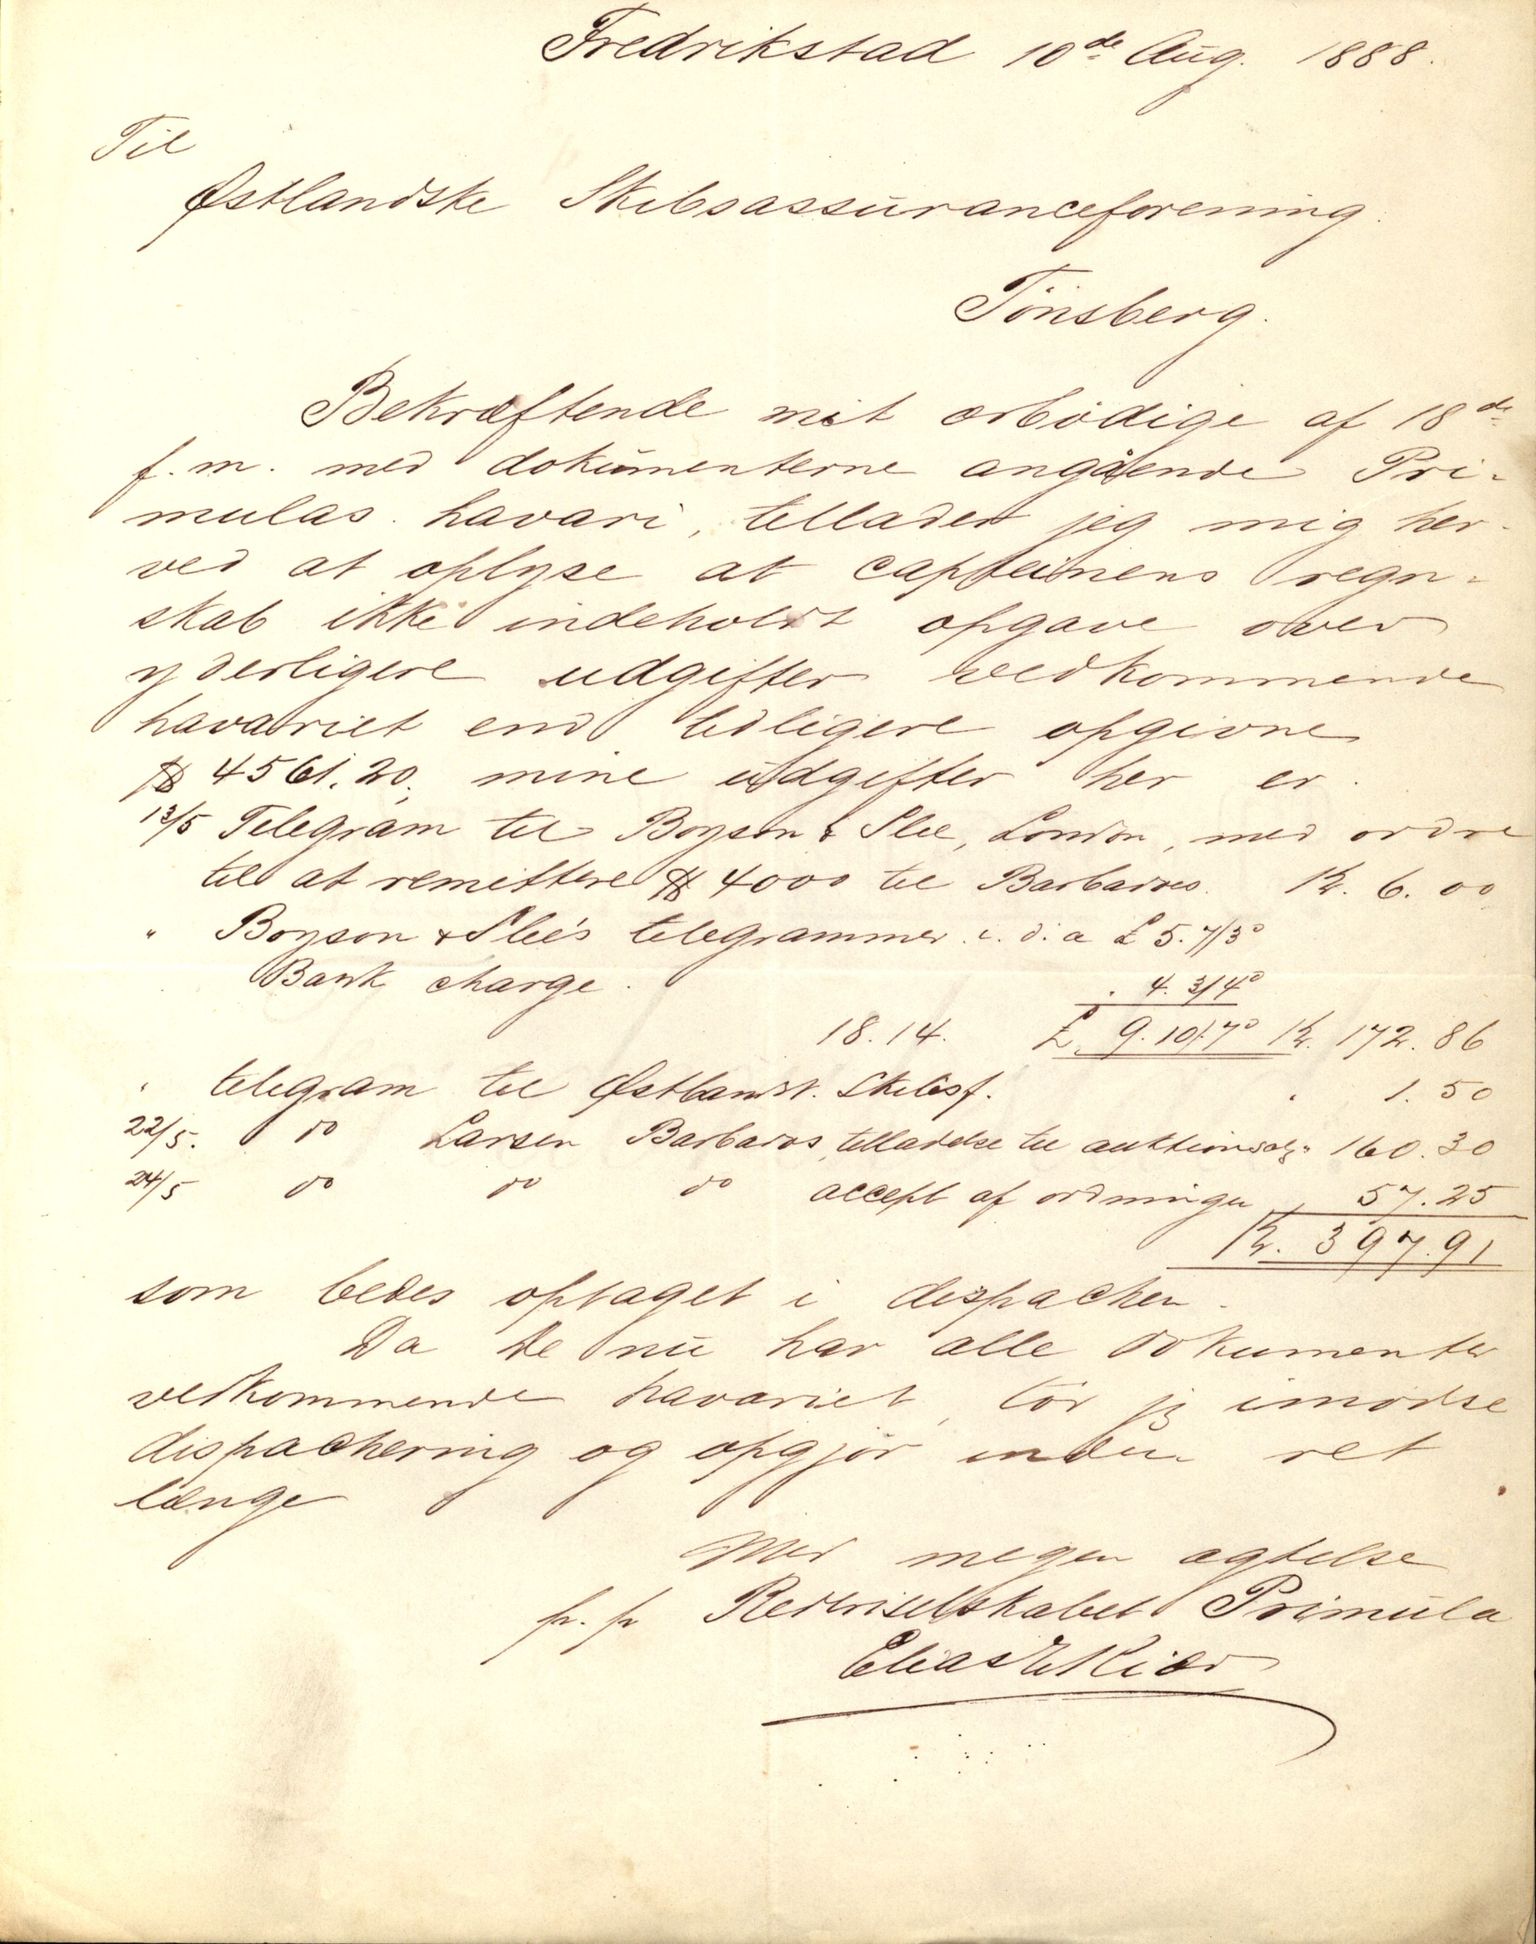 Fredrikstad 10de Aug. 1888.
Til
Østlandske Skibsassuranceforening.
Tönsberg.
Bekræftende mit ærbödige af 18de
f. m. med dokumenterne angående Pri-
mulas havari, tillader jeg mig her-
ved at oplyse at capteinens regn-
skab ikke indeholdt opgave over
yderligere udgifter vedkommende
havariet end tidligere opgivne
$ 4561.20. mine udgifter her er.
13/5 Telegram til Boyson & Slee, London, med ordre
til at remittere $ 4000 til Barbados. Kr. 6.00
" Boyson & Slee's telegrammer i. d. a £ 5.7/3d
Bank charge. " 4.3/4d
18.14. £ 9.10/7d Kr. 172.86
" telegram til Østlandsk. Skibsf. " 1.50
22/5. do Larsen Barbados, tilladelse til auktionsalg " 160.30
24/5 do do do accept af ordningen " 57.25
Kr. 397.91
som bedes optaget i dispachen.
Da De nu har alle dokumenter
vedkommende havariet, tör jeg imödse
dispachering og opgjör inden ret
længe
Med megen agtelse
pr. pr Rederiselskabet Primula
Elias C Kiær